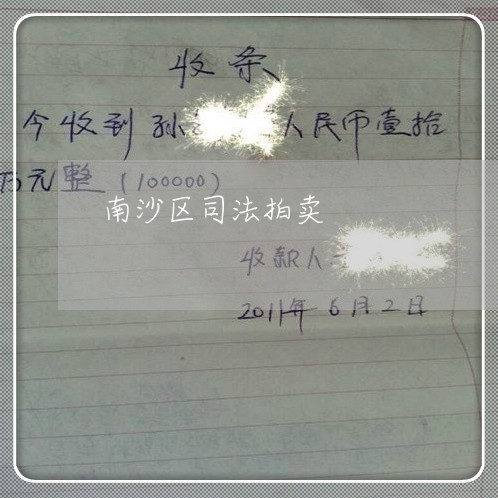 收条
今收到孙 人民币壹拾
万元整(100000)
南沙区司法拍卖
收款人
2011年6月2日